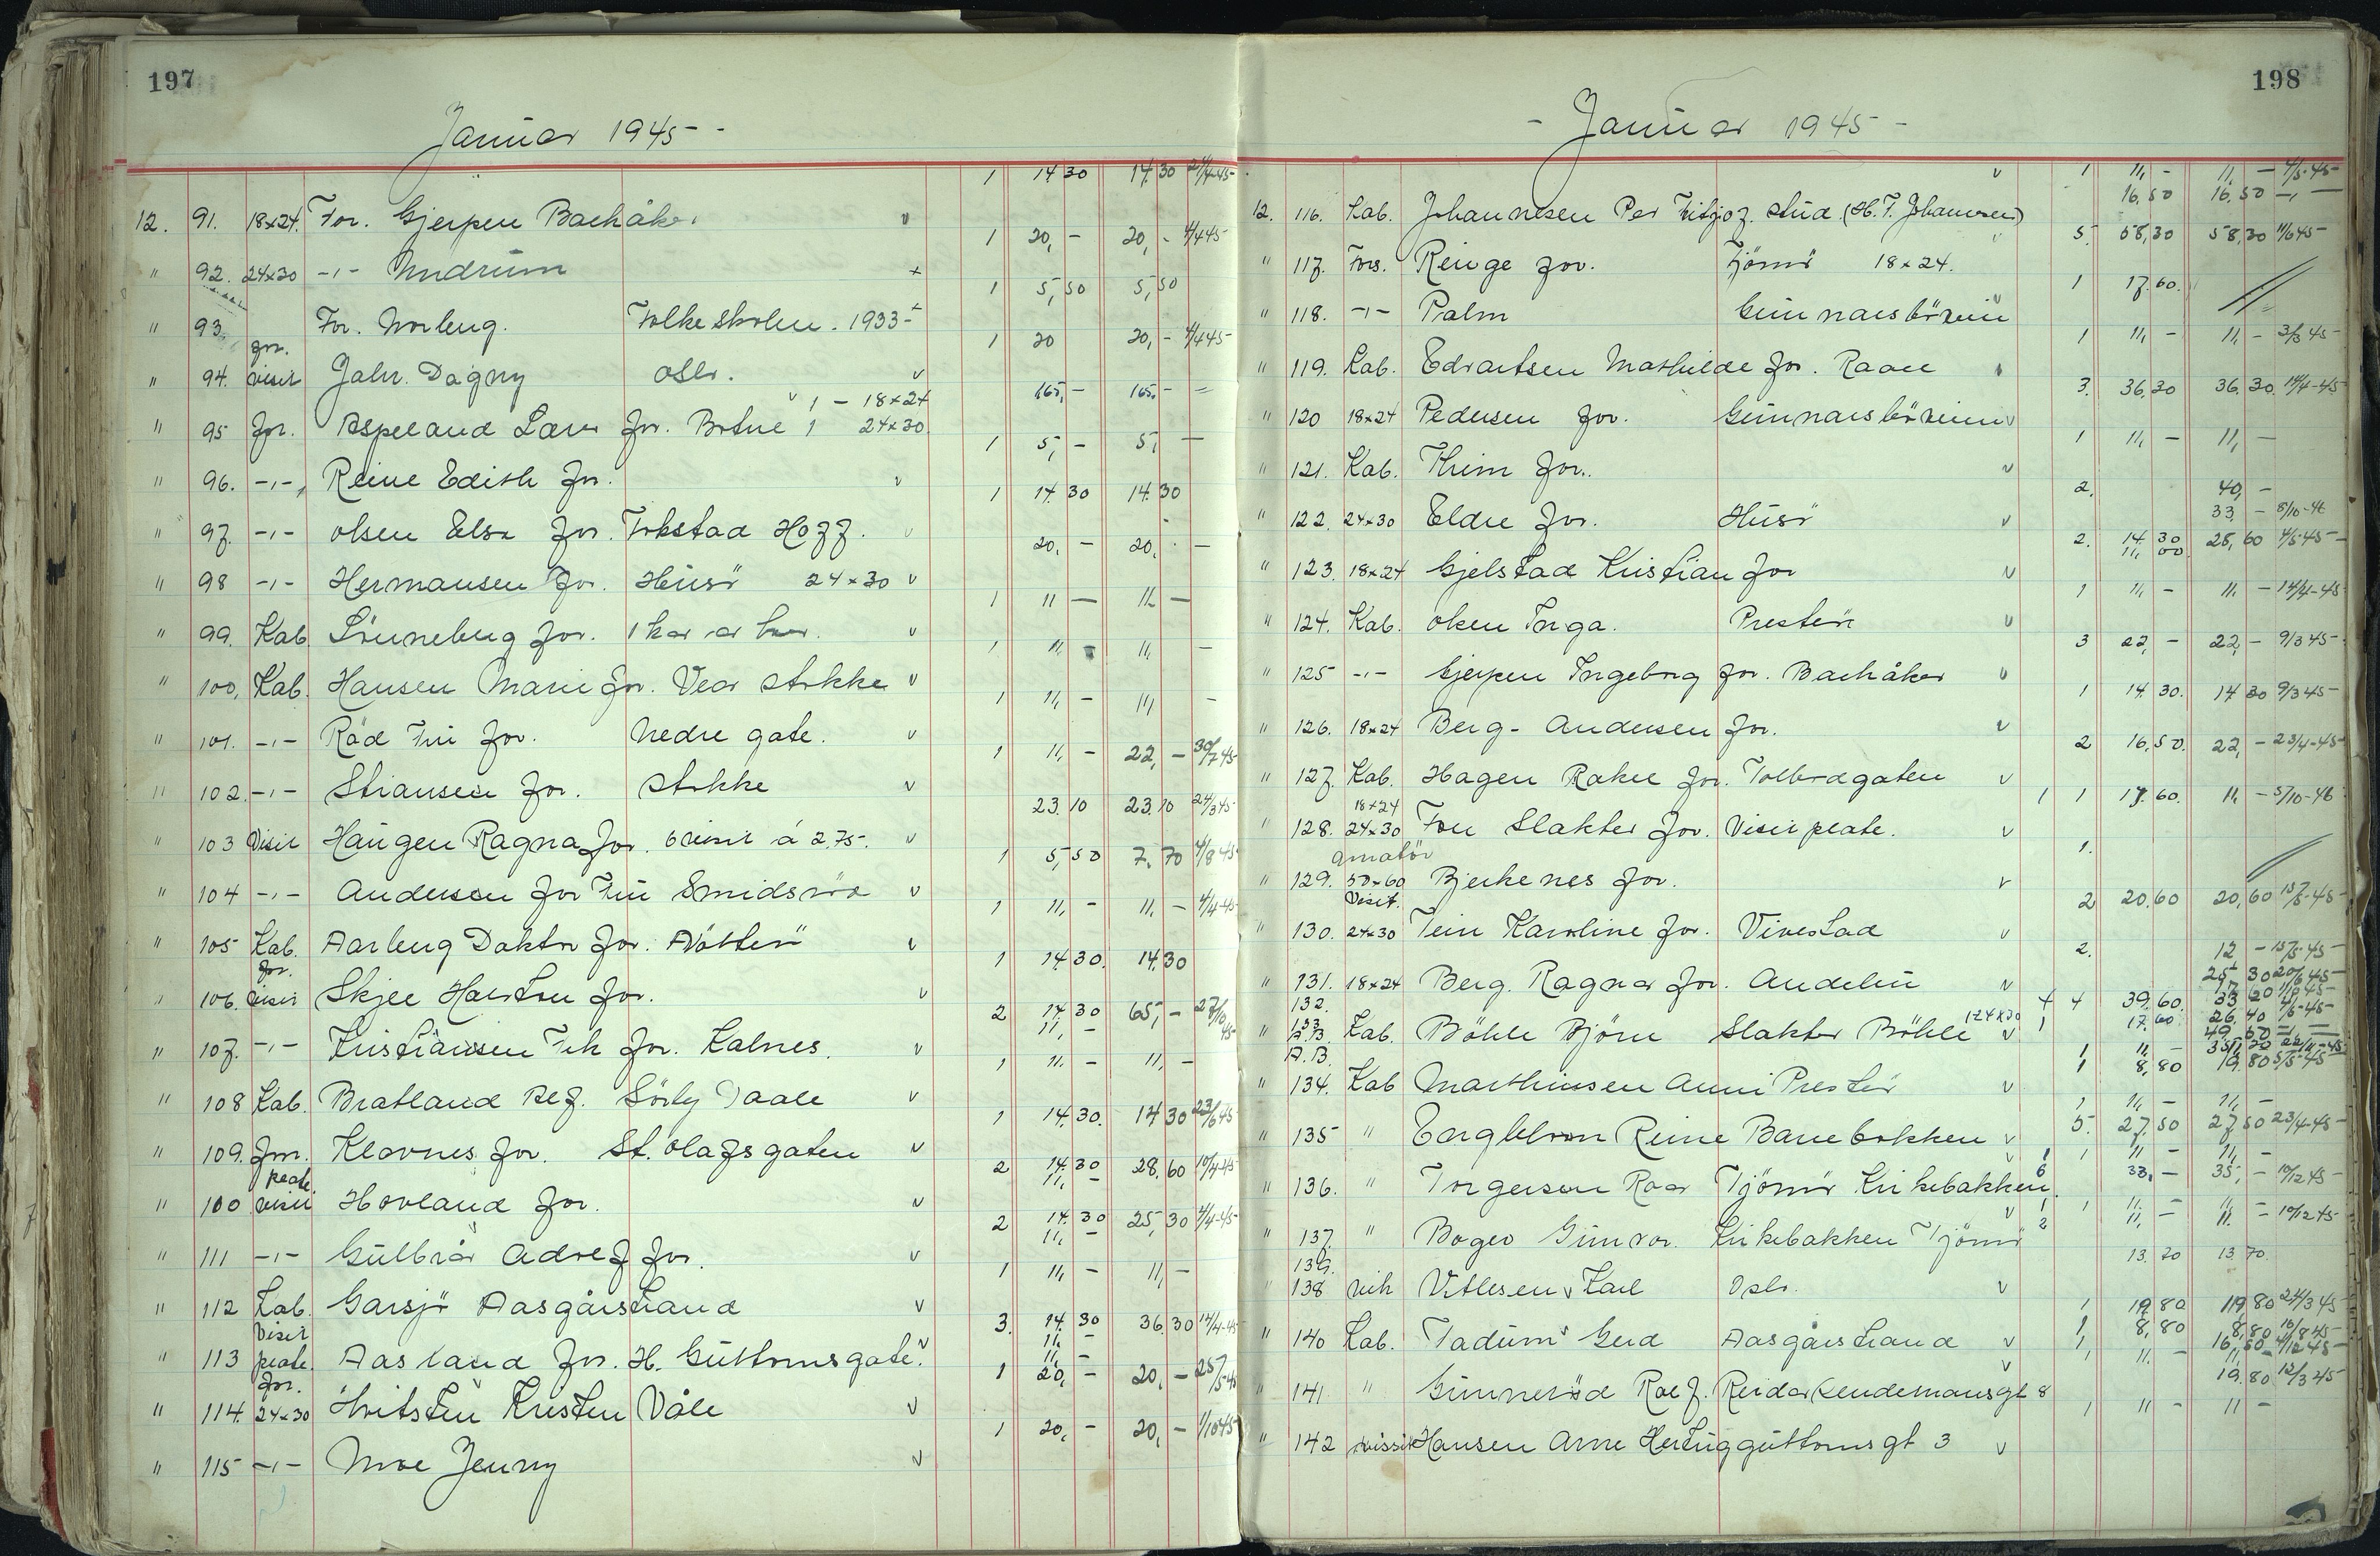 197
Januar 1945 -
1 14.30 14.30 21/4-45
12. 91. 18x24. For. Gjerpen Barkåker v
1 20,- 20,- 4/4 45
" 92. 24x30 -"- Undrum +
1 5,50 5,50
" 93. For. Norberg. Folkeskolen. 1933 +
1 20 20,- 4/4 45
" 94. for. visit Jahr. Dagny Oslo. v
v 1 - 18x24
165,- 165.- =
" 95 for. Aspeland Lars for. Botne 1 24x30
1 5,- 5, -
" 96. -"- Reine Edith for. v
1 14.30 14.30
" 97. -"- Olsen Elsa for. Fokstad Hoff. v
20,- 20, -
" 98 -"- Hermansen for. Husö 24x30 v
1 11 - 11 -
" 99. Kab. Lönneberg for. v
1 11, 11, -
" 100, Kab. Hansen Marie for. Vear Stokke v
1 11, - 11, -
" 101. -"- Råd Fru for. Nedre gate. v
1 11, - 22, - 30/7 45
" 102. -"- Stiansen for. Stokke v
23.10 23.10 24/3 45
" 103 Visit Haugen Ragna for. 6 visit á 2,75. v
1 5,50 7.70 4/8 45
" 104 -"- Andersen for Fru Smidsröd v
1 11, - 11, - 4/4-45
" 105 Kab. Aarberg Doktor for. Nötterö v
1 14.30. 14.30
" 106. for. visit Skjee Harston for. v
2 14.30 11, - 65,- 27/10 45
" 107. -"- Kristiansen for. Kalnes. v
1 11. - 11, -
" 108 Kab. Bratland Alf. Sörby Vaale v
1 14.30. 14 30 23/6 45
" 109. for. Klavnes for. St. Olafsgaten v
2 14.30 11, - 28.60 10/4-45
" 100 plate visit Hovland for. v
2 14.30 11, - 25,30 4/4-45
" 111 -"- Gulbrår Adolf for. v
1 11, - 11, -
" 112 Kab. Garsjö Aasgårstrand v
3. 14.30 11. - 11 - 36.30 14/4-45
" 113 Visit plate. Aasland for. H. Guttormsgate. v
1 20, - 20, - 25/5 45
" 114. for. 24x30 Hvitsten Kristen Våle v
1 20, - 20, - 1/10 45
" 115 -"- Moe Jenny v
198
- Januar 1945 -
v 1 11, - 11, - 4/5-45
16,50 16,50 -"-
12. 116. Kab. Johannesen Per Fritjof. stud. (H. F. Johannesen)
5. 58,30 58,30 11/6 45
" 117. Fors. Reinge for. Tjömö 18x24.
1 17.60.
" 118. -"- Palm Gunnarsböveien
1 11, - 11, - 3/3 45
" 119. Kab. Edvartsen Mathilde for. Raan
3. 36,30 36.30. 14/4-45
" 120 18x24 Pedersen for. Gunnarsböveien v
1 11, - 11, -
" 121. Kab. Thrim for. v
2. 40, -
33, - 8/10-46
" 122. 24x30 Eldre for. Husö v
2. 14.30 11,00 25,60 4/5-45
" 123. 18x24 Gjelstad Kristian for v
1 11, - 11, - 14/4-45
" 124. Kab. Olsen Inga. Presterö v
3 22, - 22, - 9/3 45
" 125 -"- Gjerpen Ingeborg for. Barkåker v
1 14.30. 14 30 9/3 45
" 126. 18x24 Berg-Andersen for. v
2 16,50. 22, - 23/4-45
" 127. Kab. Hagen Rakel for. Tolbodgaten v
1 1 17.60. 11, - 5/10-46
" 128. 18x24 24x30 Foss Slakter for. Visit plate. v
1.
" 129. amatör 50x60 Bjerkenes for. v
2 20.60 20,60 15/5-45
" 130. Visit. 24x30 Tein Karoline for. Vivestad v
2. 12 - 15/5-45
" 131. 18x24 Berg. Ragnar for. Andebu v
4 4 39.60.
132. 133 A.B. Kab. Böhle Björn Slakter Böhle 1 24x30 v 1 17.60
1 11 -
1 8,80 19.80 5/5-45
A.B.
" 134. Kab Marthinsen Anni Presterö v
1, 11, - 11, -
5. 27.50 27.50 23/4-45
" 135 " Engblom Reine Banebakken v
1 1 11 - 11, -
6 33, - 35, - 10/12 45
" 136. " Torgersen Roar Tjömö Kirkebakken.
v 1 1 11. - 11. - 10/12 45
2 11, - 11. -
" 137. " Bogen Gunvor. Kirkebakken Tjömö
13.20 13.70.
139.
" 138 visit Vitlesen, Karl Oslo. v
1 19,80 19.80 24/3 45
1 8,80 8,80 16/8 45
" 140 Kab. Tadum Gerd Aasgårstrand v 1, 16,50 4/12 45
1 11. - 11, -
19.80 12/3 45
" 141 " Gunneröd Rolf. Reidar Sendemansgt 8
1 11 - 11 -
" 142 visit Hansen Arne Hertug guttorms gt 3 v